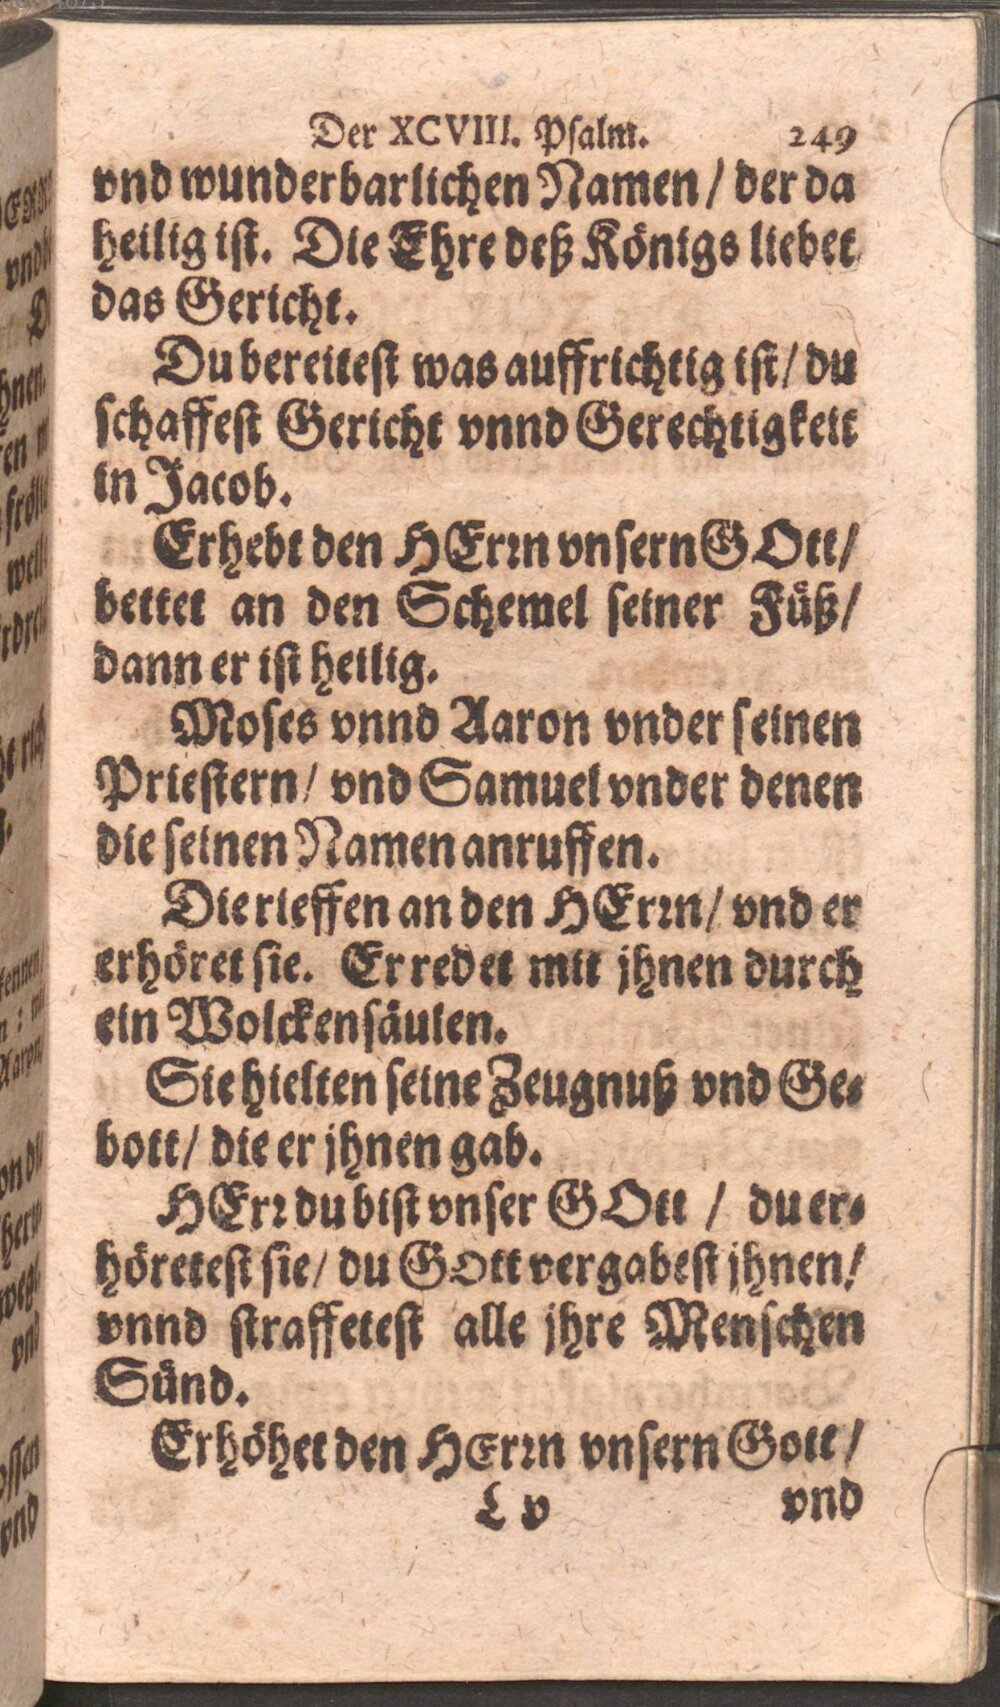 Der XCVIII. Psalm. 249
vnd wunderbarlichen Namen / der da
heilig ist. Die Ehre deß Königs liebet
das Gericht.
Du bereitest was auffrichtig ist / du
schaffest Gericht vnnd Gerechtigkeit
in Jacob.
Erhebt den HErrn vnsern GOtt /
bettet an den Schemel seiner Füß /
dann er ist heilig.
Moses vnnd Aaron vnder seinen
Priestern / vnd Samuel vnder denen
die seinen Namen anruffen.
Die rieffen an den HErrn / vnd er
erhöret sie. Er redet mit jhnen durch
ein Wolckensäulen.
Sie hielten seine Zeugnuß vnd Ge-
bott / die er jhnen gab.
HErr du bist vnser GOtt / du er-
höretest sie / du Gott vergabest jhnen /
vnnd straffetest alle jhre Menschen
Sünd.
Erhöhet den HErrn vnsern Gott /
L v vnd